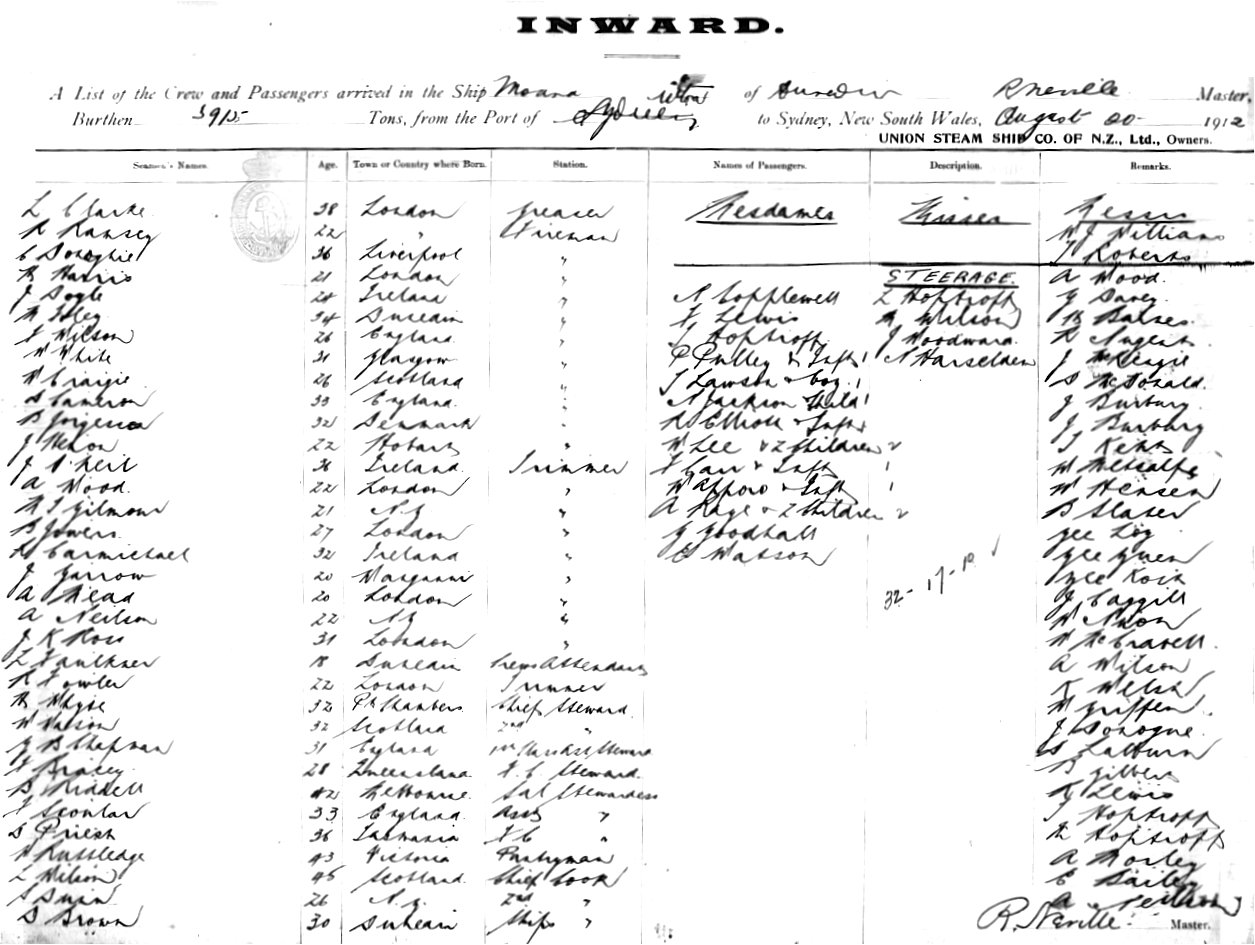 INWARD.
A List of the Crew and Passengers arrived in the Ship Moana of Dunedin R Neville Master,
Burthen 3915 Tons, from the Port of Sydney to Sydney, New South Wales, August 20 1912
UNION STEAM SHIP CO. OF N.Z., Ltd., Owners.
Seamen's Names. Age. Town or Country where Born. Station. Names of Passengers. Description. Remarks.
L Clarke 38 London Greaser Mesdames Misses Messrs
R Ramsey 22 " Fireman W J Williams
C Donoghie 36 Liverpool " T Roberts
H Harris 21 London " STEERAGE. A Wood
J Doyle 24 Ireland " N Copplewell L Hoptroff G Davey
M Foley 34 Dunedin " F Lewis M Wilson H Barnes
F Wilson 26 England " T Hoptroff J Woodward R Nugent
W White 31 Glasgow " P Pulley & Inft 1 N Harselden J McKenzie
W Craigie 26 Scotland " T Lawson & boy 1 D McDonald
D Cameron 33 England " N Jackson child 1 J Burbury
B Jorgensen 32 Denmark " R Elliott & Inft 1 J Burbury
J Henon 22 Hobart " W Lee & 2 Children 2 T Kent
J O'Neil 36 Ireland Trimmer F Carr & Inft 1 W Metcalfe
A Wood 22 London " & Inft 1 W Hensen
M J Gilmour 21 N.Z " A Kage & 2 Children 2 B Slater
B Jowers 27 London " G Goodhall Gee
R Carmichael 32 Ireland " E Watson Gee Quen
J Garrow 20 " 32-17-10 Gee
A Mead 20 London " J Caggill
A Neilson 22 N.Z " W Nixon
J K Ross 31 London "
L Faulkner 18 Dunedin Crews Attendant A Wilson
R Fowler 22 London Trimmer K Welsh
H Whyte 32 Pt Chambers Chief Steward W Griffen
W Watson 32 Scotland 2nd " J Donogue
G B Chapman 31 England Steward
F Bracey 28 Queensland F. C. Steward B Gilbert
B Riddell 42 Melbourne Sal Stewardess K Lewis
F Scoular 33 England Asst " T Hoptroff
D Priest 36 Tasmania F C " M Hoptroff
H Ruttledge 43 Victoria Pantryman A Morley
L Wilson 45 Scotland Chief Cook E Bailey
S Swin 26 N.Z. 2nd " A
D Brown 30 Dunedin Ships " R. Neville Master.